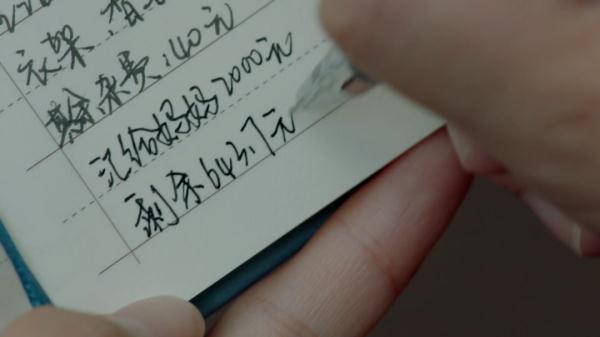 衣架
杂费:40元
汇给妈妈2000元
剩余643.7元